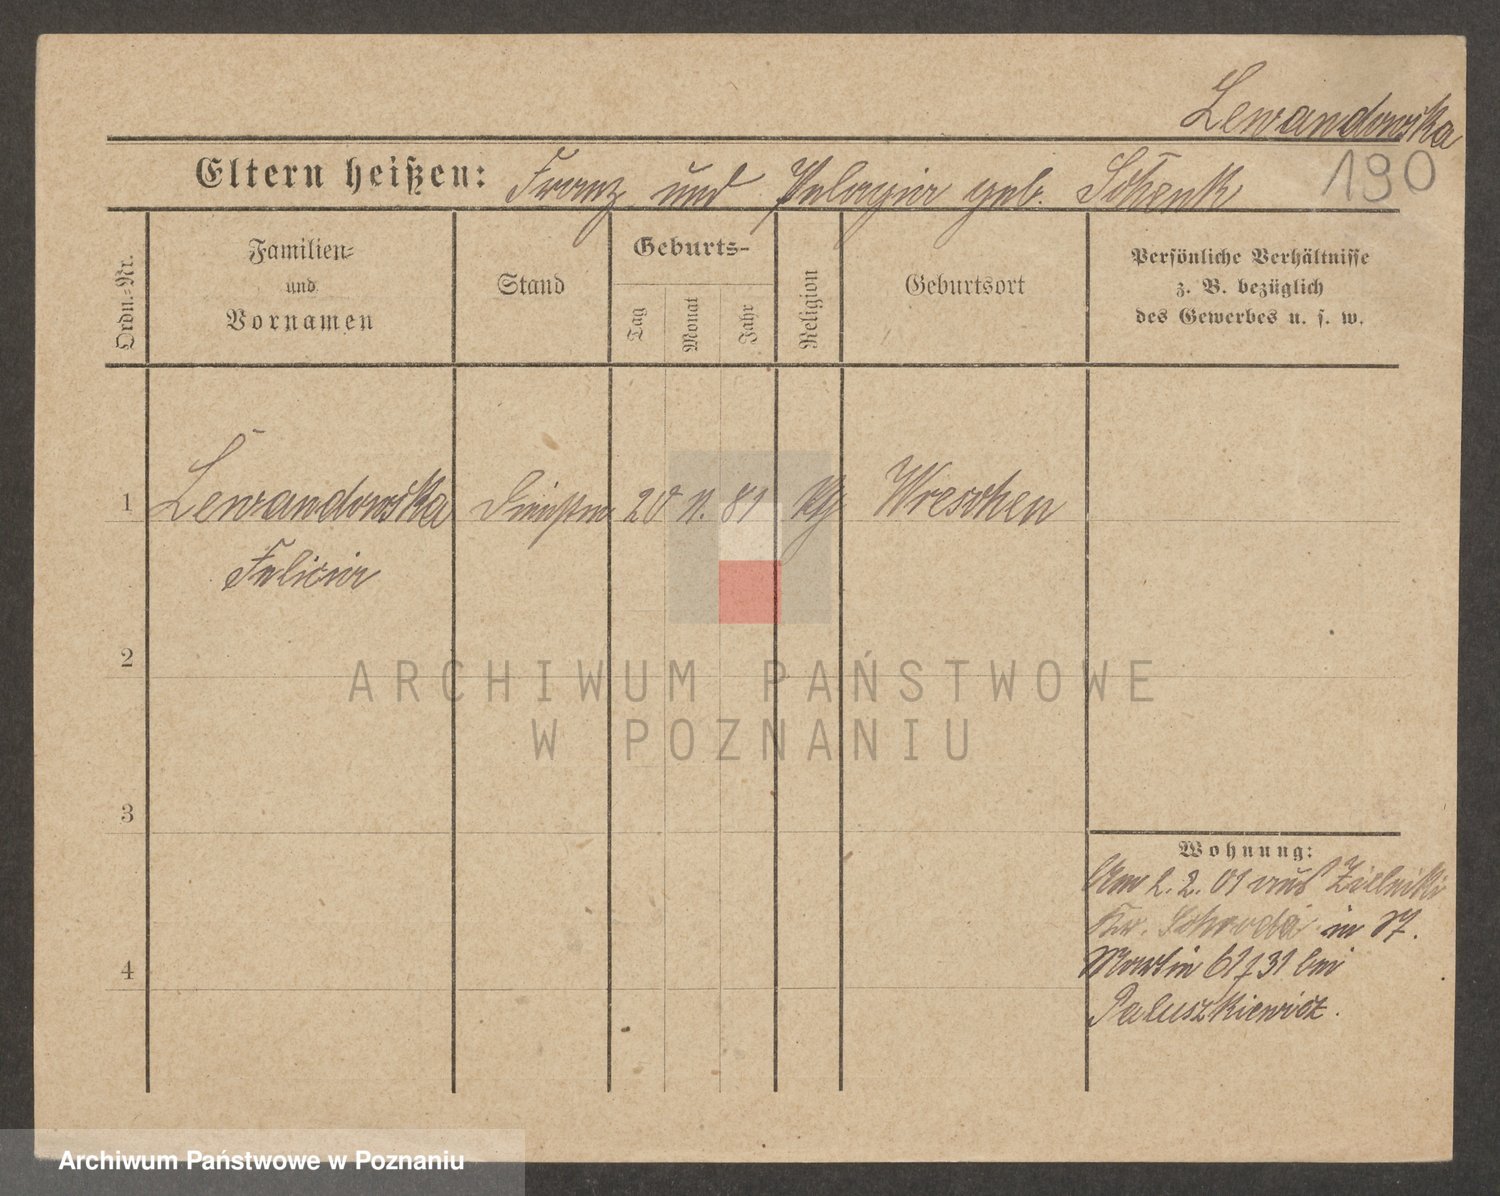 Lewandowska
190
Eltern heißen: Franz und Pelagia geb. Schenk
Ordn.-Nr.
Familien-
und
Vornamen
Stand
Geburts-
Tag
Monat
Jahr
Religion
Geburtsort
Persönliche Verhältnisse
z. B. bezüglich
des Gewerbes u. s. w.
1 Lewandowska 20 11. 81 Wreschen
Felicia
2
3
4
Wohnung:
Am 2. 2. 01 aus Zielniki
Kr. Schroda in St.
Martin 61/31 bei
Paluszkiewicz.
ARCHIWUM PAŃSTWOWE
W POZNANIU
Archiwum Państwowe w Poznaniu